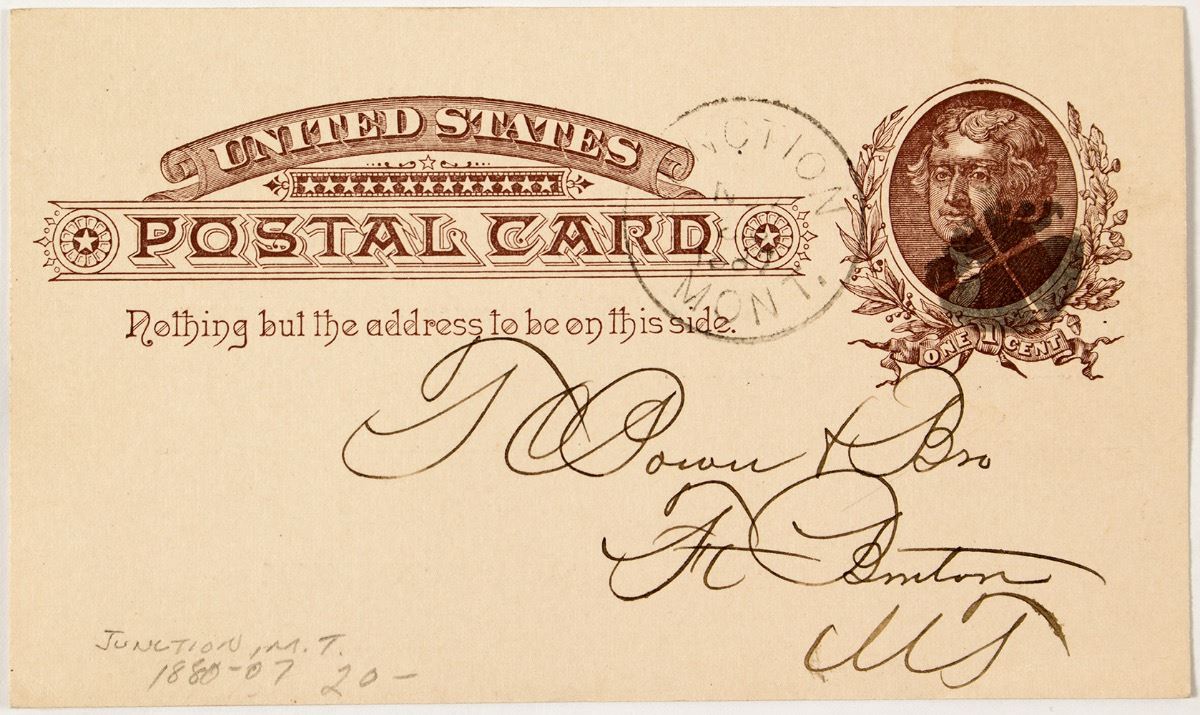 UNITED STATES
POSTAL CARD
Nothing but the address to be on this side.
NCTION
MONT.
ONE 1 CENT
T C Power & Bro
Ft Benton
MT
JUNCTION, M.T.
1880-07 20-